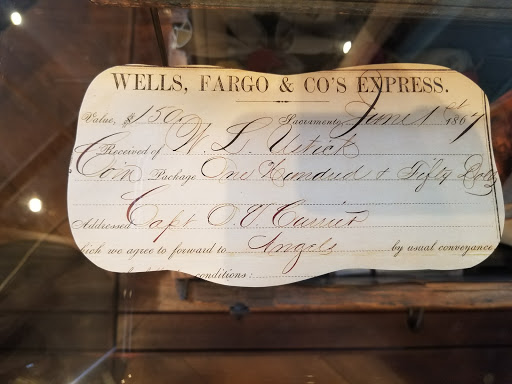 WELLS, FARGO & CO'S EXPRESS.
Value, $150 Sacramento, June 1st 1867
Received of W. L. Ustick
Coin Package One Hundred & Fifty Dolls
Addressed Capt O. V. Currier
which we agree to forward to Angels by usual conveyance
conditions: